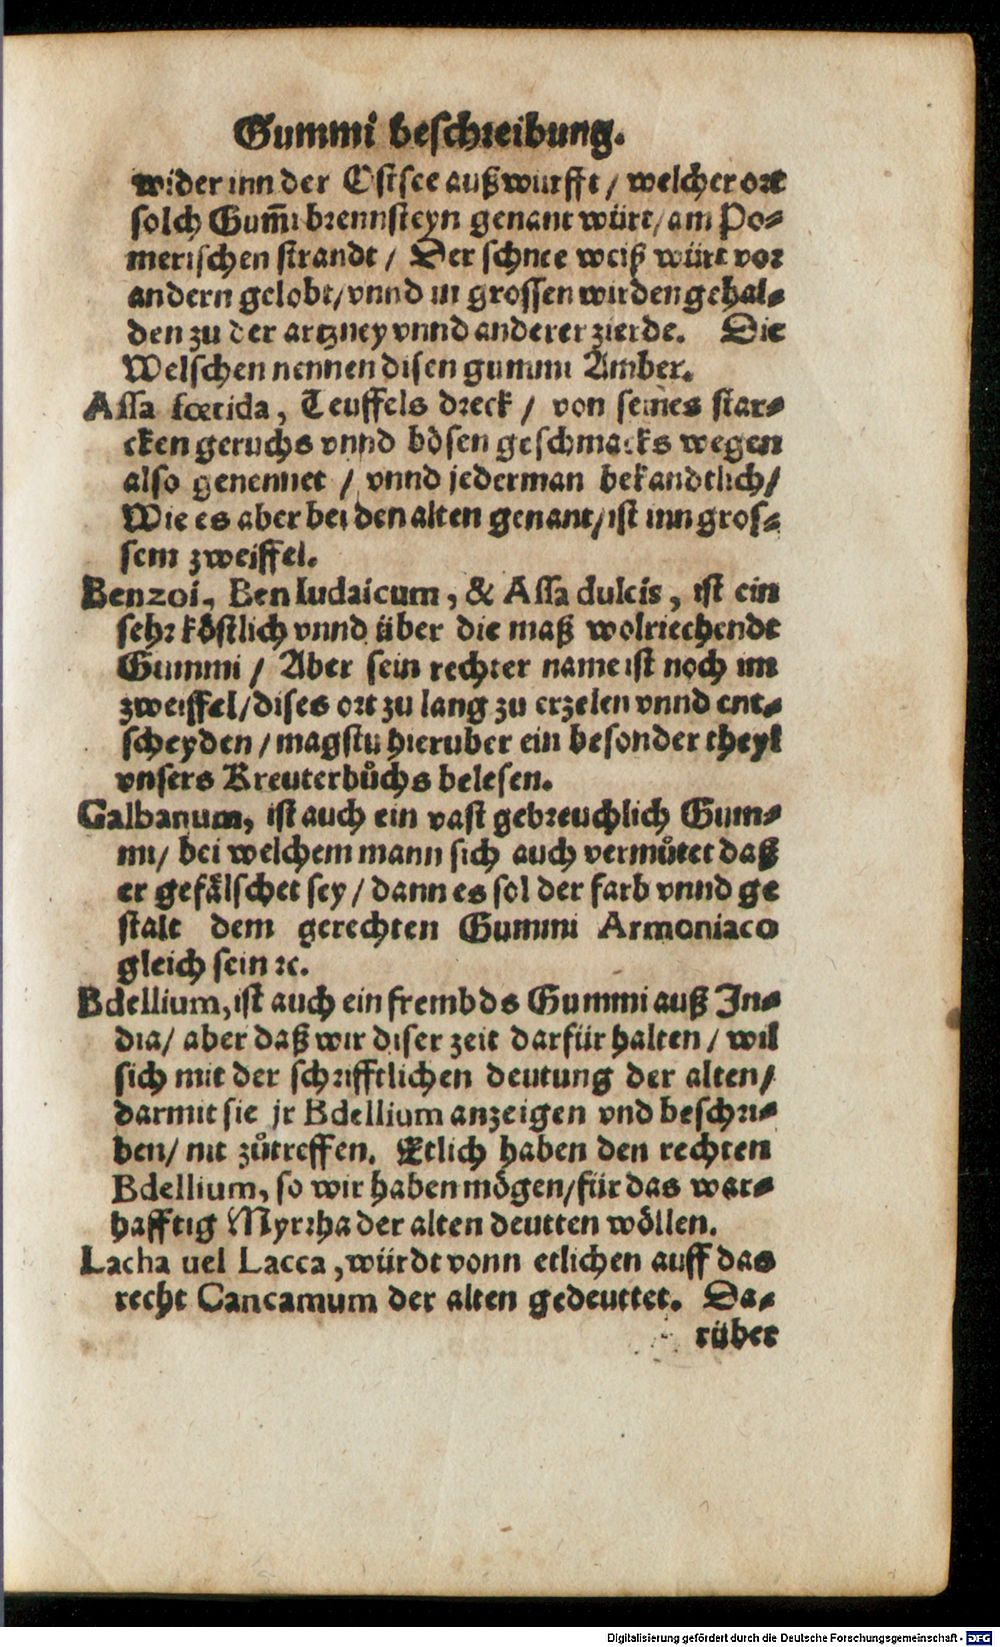 Gummi beschreibung.
wider inn der Ostsee außwurfft / welcher ort
solch Gum̃i brennsteyn genant würt / am Po⸗
merischen strandt / Der schnee weiß würt vor
andern gelobt / vnnd in grossen wirden gehal⸗
den zu der artzney vnnd anderer zierde. Die
Welschen nennen disen gummi Amber.
Assa fœtida, Teuffels dreck / von seines star⸗
cken geruchs vnnd bösen geschmacks wegen
also genennet / vnnd jederman bekandtlich /
Wie es aber bei den alten genant / ist inn gros⸗
sem zweiffel.
Benzoi, Ben Iudaicum, & Assa dulcis, ist ein
sehr köstlich vnnd über die maß wolriechende
Gummi / Aber sein rechter name ist noch im
zweiffel / dises ort zu lang zu erzelen vnnd ent⸗
scheyden / magstu hieruber ein besonder theyl
vnsers Kreuterbůchs belesen.
Galbanum, ist auch ein vast gebreuchlich Gum⸗
mi / bei welchem mann sich auch vermůtet daß
er gefälschet sey / dann es sol der farb vnnd ge
stalt dem gerechten Gummi Armoniaco
gleich sein ꝛc.
Bdellium, ist auch ein frembds Gummi auß In⸗
dia / aber daß wir diser zeit darfür halten / wil
sich mit der schrifftlichen deutung der alten /
darmit sie jr Bdellium anzeigen vnd beschri⸗
ben / nit zůtreffen. Etlich haben den rechten
Bdellium, so wir haben mögen / für das war⸗
hafftig Myrrha der alten deutten wöllen.
Lacha uel Lacca, würdt vonn etlichen auff das
recht Cancamum der alten gedeuttet. Da⸗
rüber
Digitalisierung gefördert durch die Deutsche Forschungsgemeinschaft - DFG